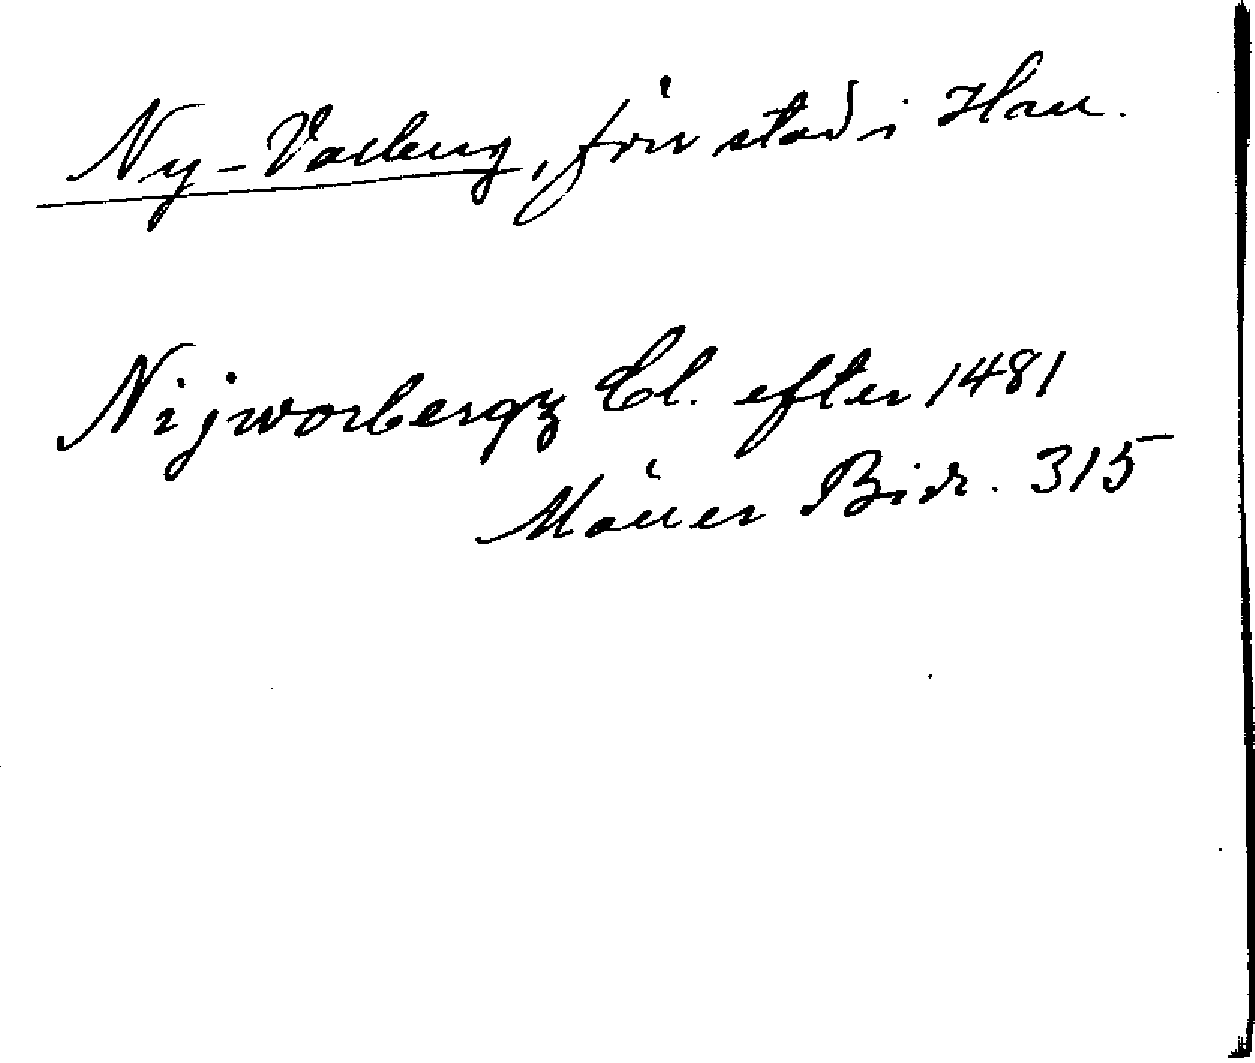 Ny-Varberg, förr stad i Hall.
Nijworbergz Cl. efter 1481
Möller Bidr. 315